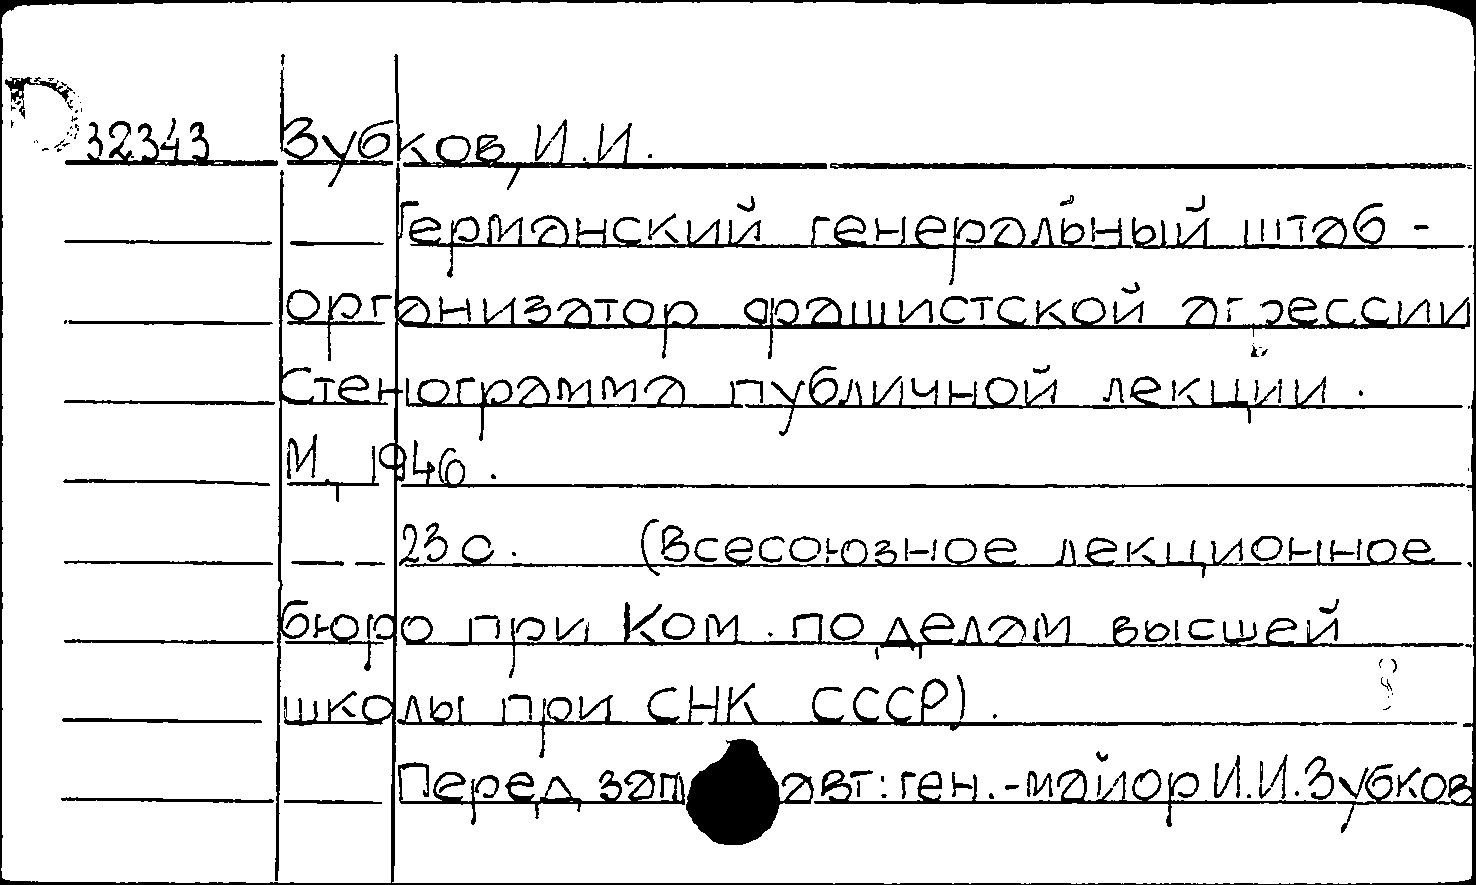 32343 Зубков, И.И.
Германский генеральный штаб -
организатор фашистской агрессии
Стенограмма публичной лекции.
М., 1946.
23 с. (Всесоюзное лекционное
бюро при Ком. по делам высшей
школы при СНК СССР).
Перед авт: ген.-майор И.И.Зубков